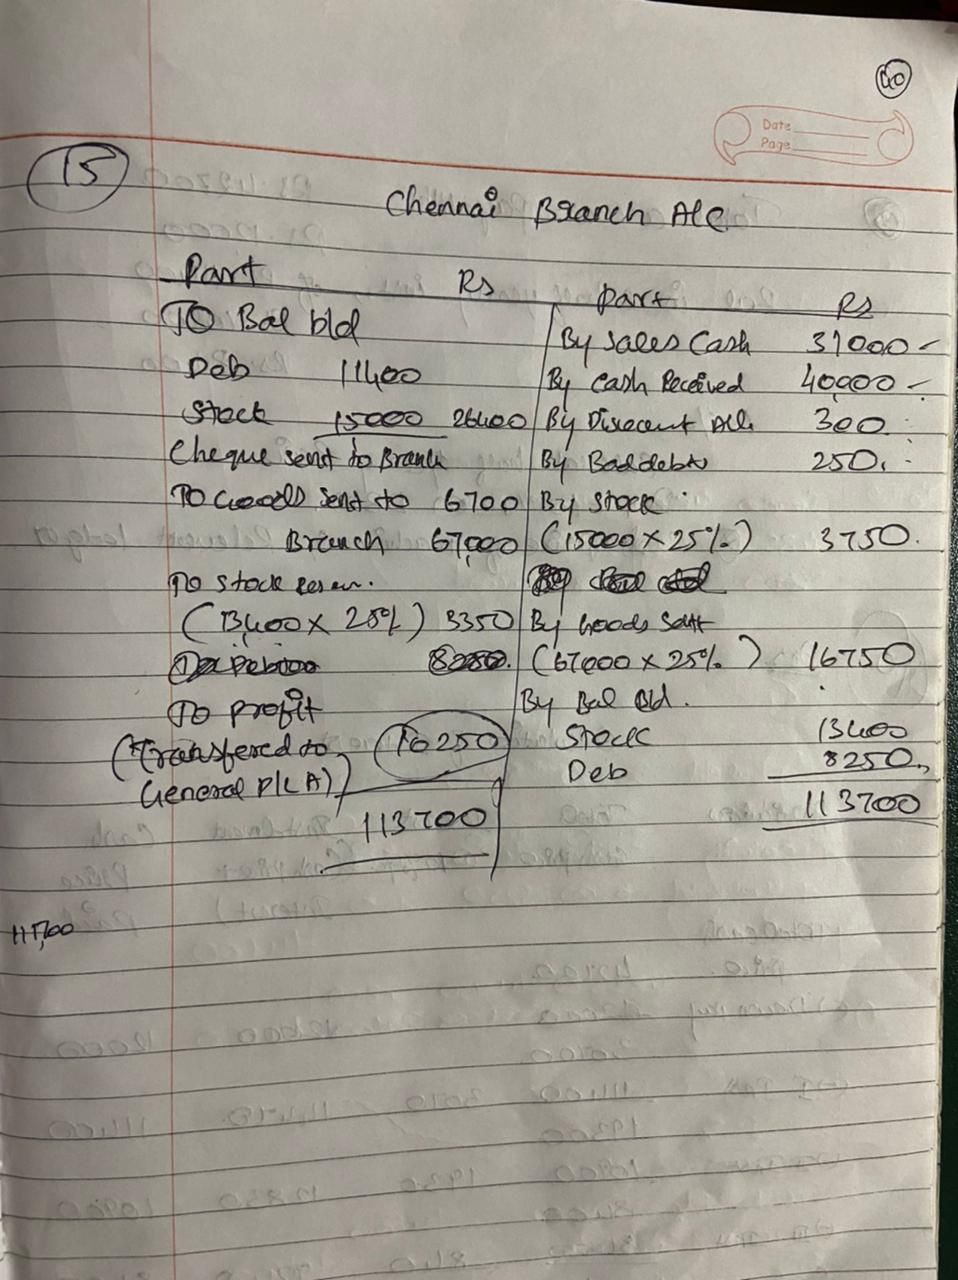 40
Date
Page
15
Chennai Branch A/C
Part Rs Part Rs
To Bal b/d By Sales Cash 31000
Deb 11400 By Cash Received 40,000
Stock 15000 26400 By Discount All. 300
Cheque sent to Branch By Bad debts 250
To Goods Sent to 6700 By Stock
Branch 67,000 (15000 X 25%) 3750
To Stock reser.
(13,400 X 25%) 3350 By Goods Sent
(67000 X 25%) 16750
To Profit By Bal Bd.
(Transfered to 10250 Stock 13400
General P/L A) Deb 8250
113700 113700